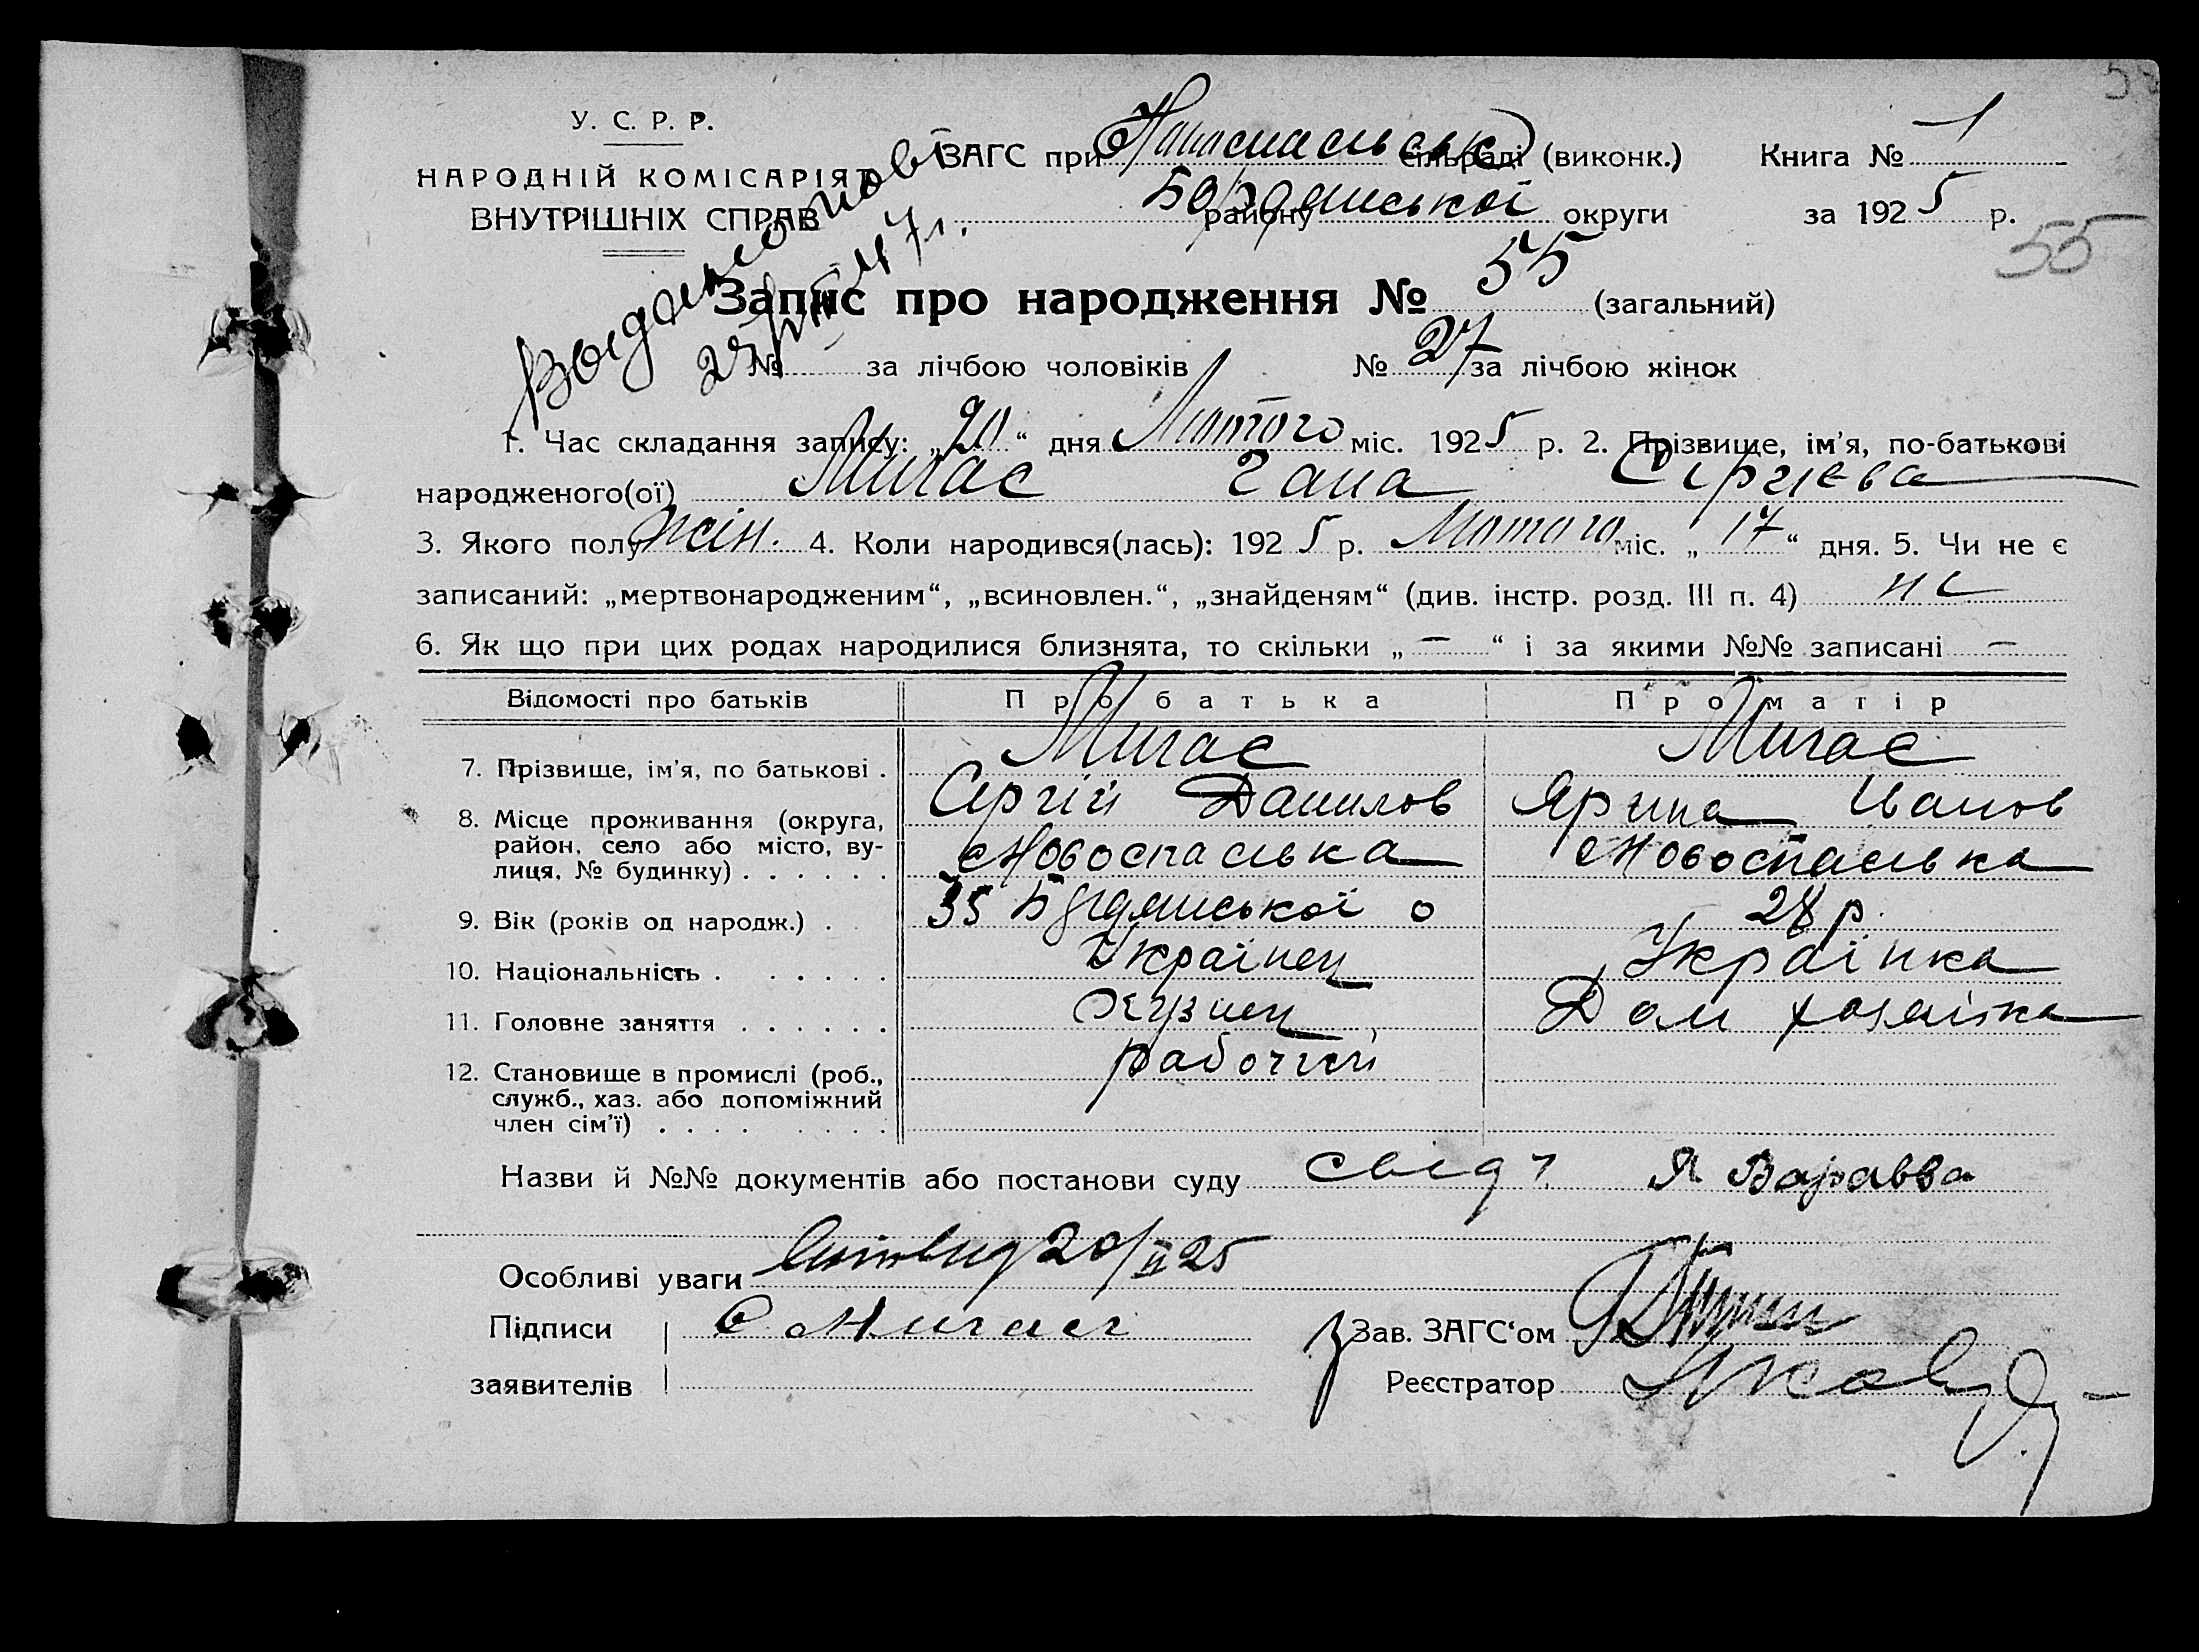 У. С. Р. Р.
НАРОДНІЙ КОМІСАРІЯТ
ВНУТРІШНІХ СПРАВ
ЗАГС при сільраді (виконк.) Книга № 1
району округи за 1925 р.
55
Запис про народження № 55 (загальний)
№ за лічбою чоловіків № 27 за лічбою жінок
1. Час складання запису: „20“ дня Лютого міс. 1925 р. 2. Прізвище, ім'я, по-батькові
народженого(ої) Мигас Гана Сергієва
3. Якого полу жін. 4. Коли народився(лась): 1925 р. Лютого міс. „17“ дня. 5. Чи не є
записаний: „мертвонародженим“, „всиновлен.“, „знайденям“ (див. інстр. розд. III п. 4) не
6. Як що при цих родах народилися близнята, то скільки „—“ і за якими №№ записані —
Відомості про батьків Про батька Про матір
7. Прізвище, ім'я, по батькові . Мигас Мигас
Сергій Данилов Ярина Иванов
8. Місце проживання (округа, район, село або місто, вулиця, № будинку) . . . . . . Новоспаська Новоспаська
9. Вік (років од народж.) . 35 о 28 р.
10. Національність . . . . . . Українец Українка
11. Головне заняття . . . . . . Кузнец Дом хозяйка
12. Становище в промислі (роб., служб., хаз. або допоміжний член сім'ї) . . . . . . . . рабочий
Назви й №№ документів або постанови суду Я Варавва
Особливі уваги 20/II 25
Підписи С Мигас Зав. ЗАГС'ом
заявителів Реєстратор